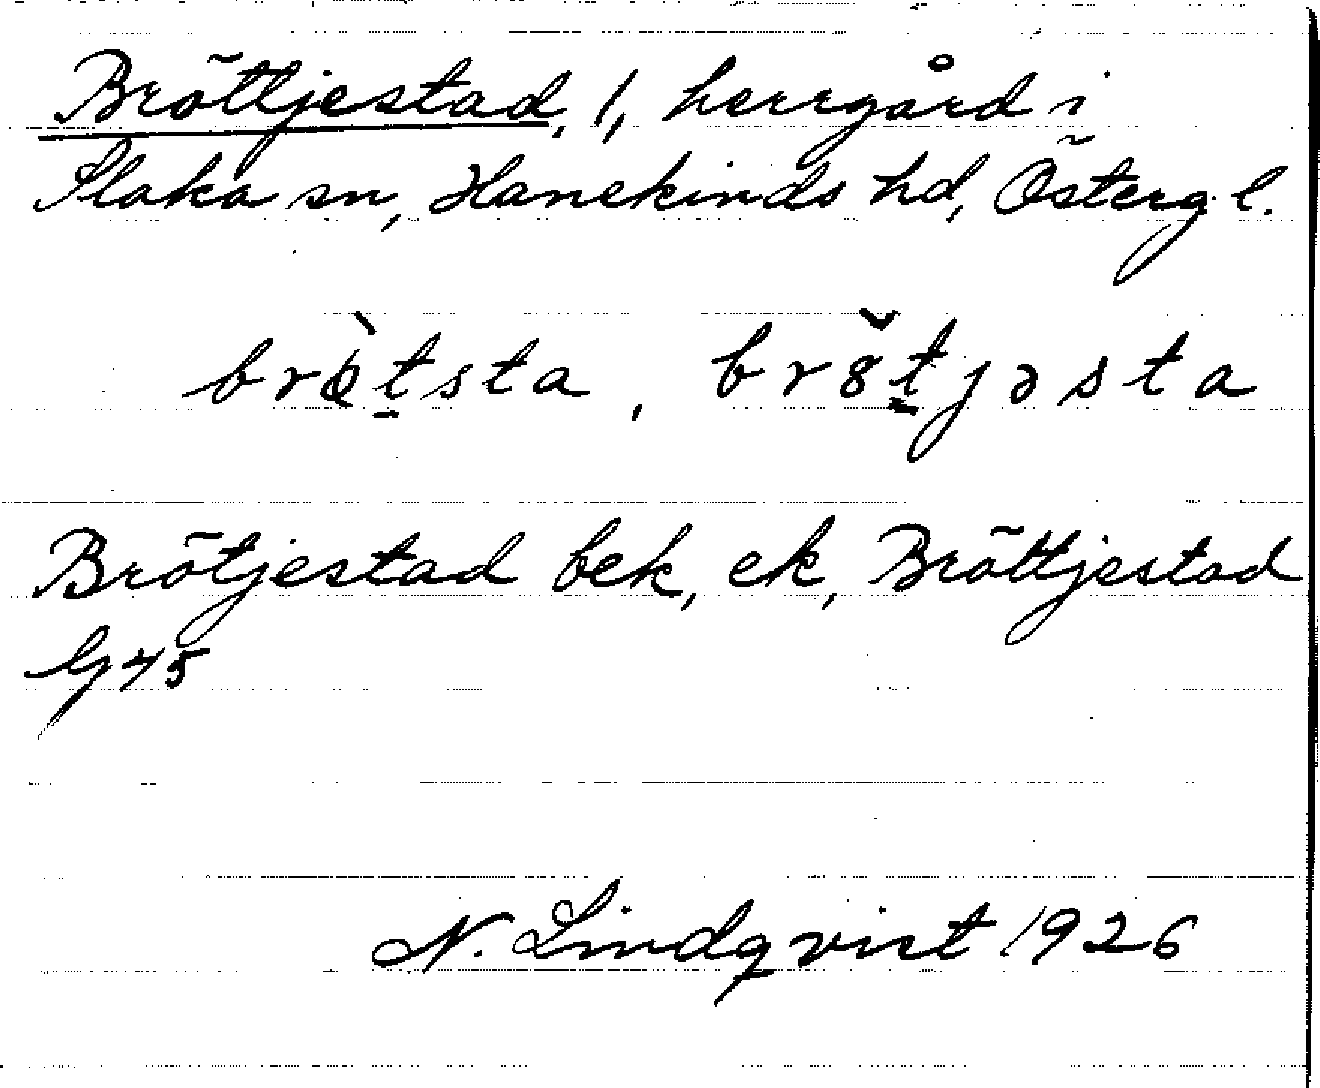 Bröttjestad, 1, herrgård i
Slaka sn, Hanekinds hd, Östergl.
brø̀t̠sta, br8̌t̠jəsta
Brötjestad bek, ek, Bröttjestad
G45
N. Lindqvist 1926